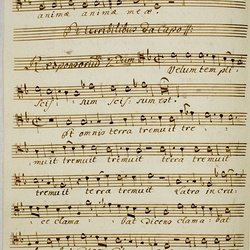 animæ animæ meæ.
Et lineribilibus da Capo
Responsorium 2dum Velum templi
scis: sum scis: sum est.
Et omnis terra tremuit tre:
muit tremuit terra tremuit
tremuit terra tremuit Latro in cru:
ce clama: bat Dicens clama: bat